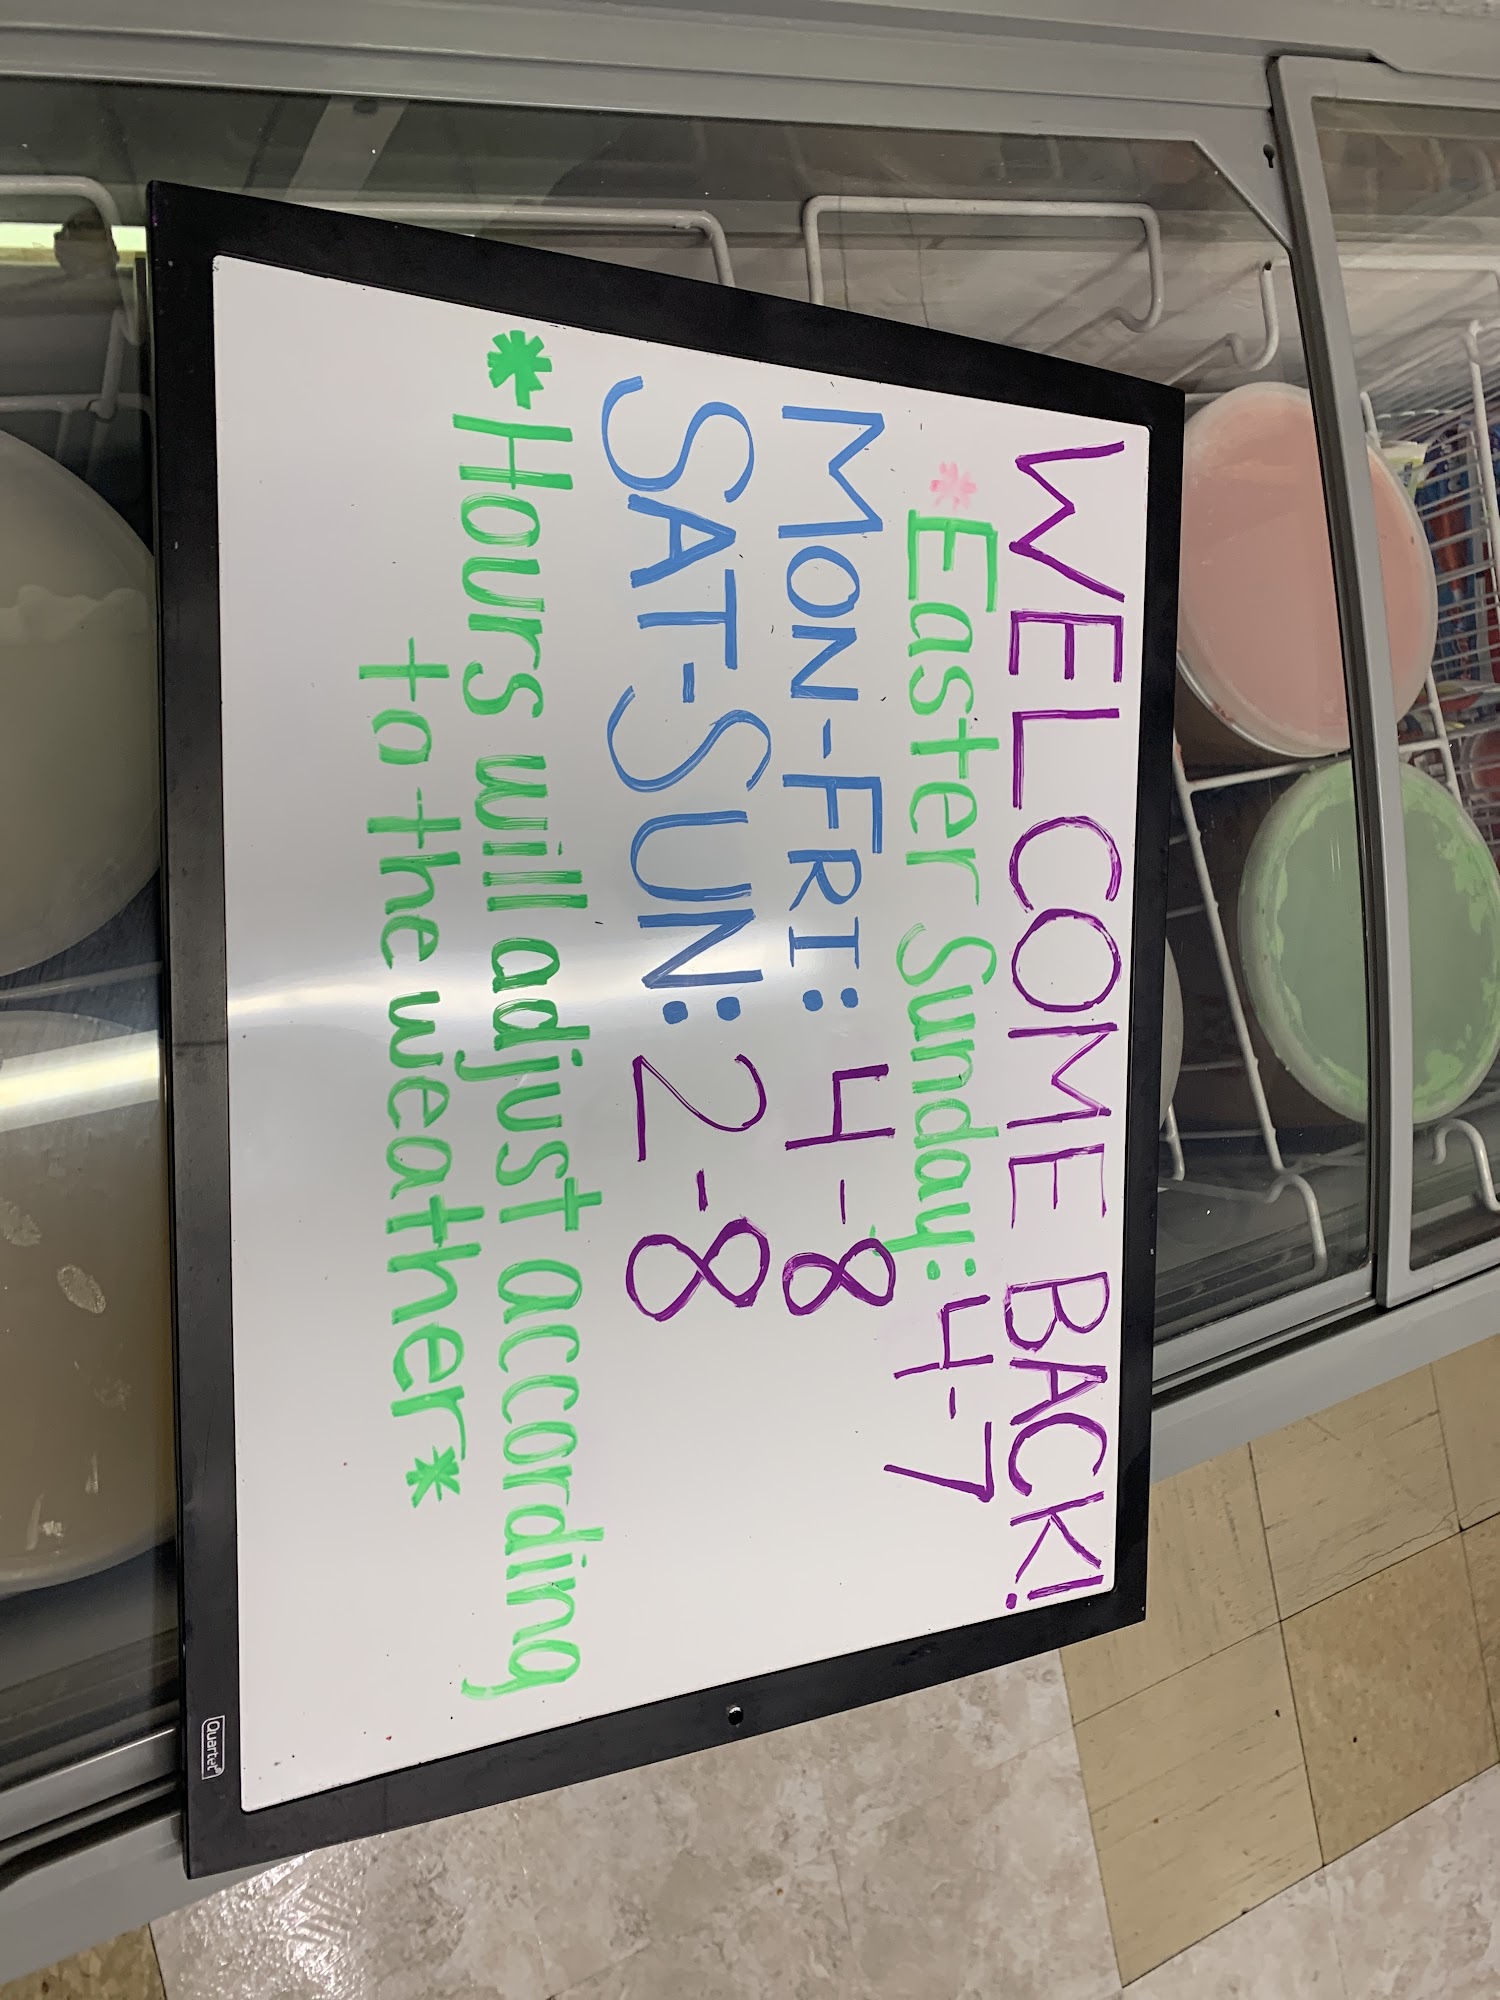 WELCOME BACK!
*Easter Sunday: 4-7
MON-FRI: 4-8
SAT-SUN: 2-8
*Hours will adjust according
to the weather*
Quartet